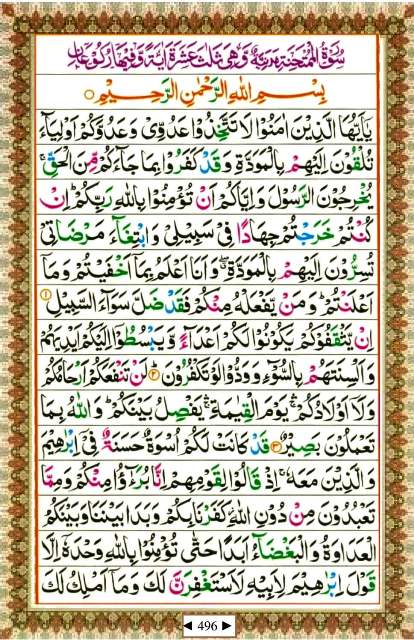 سُوْرَةُ الْمُمْتَحِنَةِ مَدَنِيَّةٌ وَّهِيَ ثَلٰثَ عَشْرَةَ اٰيَةً وَّفِيْهَا رُكُوْعَانِ
بِسْمِ اللّٰهِ الرَّحْمٰنِ الرَّحِيْمِ ○
يٰۤاَيُّهَا الَّذِيْنَ اٰمَنُوْا لَا تَتَّخِذُوْا عَدُوِّيْ وَعَدُوَّكُمْ اَوْلِيَآءَ
تُلْقُوْنَ اِلَيْهِمْ بِالْمَوَدَّةِ وَقَدْ كَفَرُوْا بِمَا جَآءَكُمْ مِّنَ الْحَقِّ ۚ
يُخْرِجُوْنَ الرَّسُوْلَ وَاِيَّاكُمْ اَنْ تُؤْمِنُوْا بِاللّٰهِ رَبِّكُمْ ؕ اِنْ
كُنْتُمْ خَرَجْتُمْ جِهَادًا فِيْ سَبِيْلِيْ وَابْتِغَآءَ مَرْضَاتِيْ
تُسِرُّوْنَ اِلَيْهِمْ بِالْمَوَدَّةِ ۖ وَاَنَا اَعْلَمُ بِمَاۤ اَخْفَيْتُمْ وَمَاۤ
اَعْلَنْتُمْ ؕ وَمَنْ يَّفْعَلْهُ مِنْكُمْ فَقَدْ ضَلَّ سَوَآءَ السَّبِيْلِ ۝۱
اِنْ يَّثْقَفُوْكُمْ يَكُوْنُوْا لَكُمْ اَعْدَآءً وَّيَبْسُطُوْۤا اِلَيْكُمْ اَيْدِيَهُمْ
وَاَلْسِنَتَهُمْ بِالسُّوْٓءِ وَوَدُّوْا لَوْ تَكْفُرُوْنَ ۝۲ لَنْ تَنْفَعَكُمْ اَرْحَامُكُمْ
وَلَاۤ اَوْلَادُكُمْ ۛۚ يَوْمَ الْقِيٰمَةِ ۛۚ يَفْصِلُ بَيْنَكُمْ ؕ وَاللّٰهُ بِمَا
تَعْمَلُوْنَ بَصِيْرٌ ۝۳ قَدْ كَانَتْ لَكُمْ اُسْوَةٌ حَسَنَةٌ فِيْۤ اِبْرٰهِيْمَ
وَالَّذِيْنَ مَعَهٗ ۚ اِذْ قَالُوْا لِقَوْمِهِمْ اِنَّا بُرَءٰٓؤُا مِنْكُمْ وَمِمَّا
تَعْبُدُوْنَ مِنْ دُوْنِ اللّٰهِ ؗ كَفَرْنَا بِكُمْ وَبَدَا بَيْنَنَا وَبَيْنَكُمُ
الْعَدَاوَةُ وَالْبَغْضَآءُ اَبَدًا حَتّٰى تُؤْمِنُوْا بِاللّٰهِ وَحْدَهٗۤ اِلَّا
قَوْلَ اِبْرٰهِيْمَ لِاَبِيْهِ لَاَسْتَغْفِرَنَّ لَكَ وَمَاۤ اَمْلِكُ لَكَ
◄ 496 ►